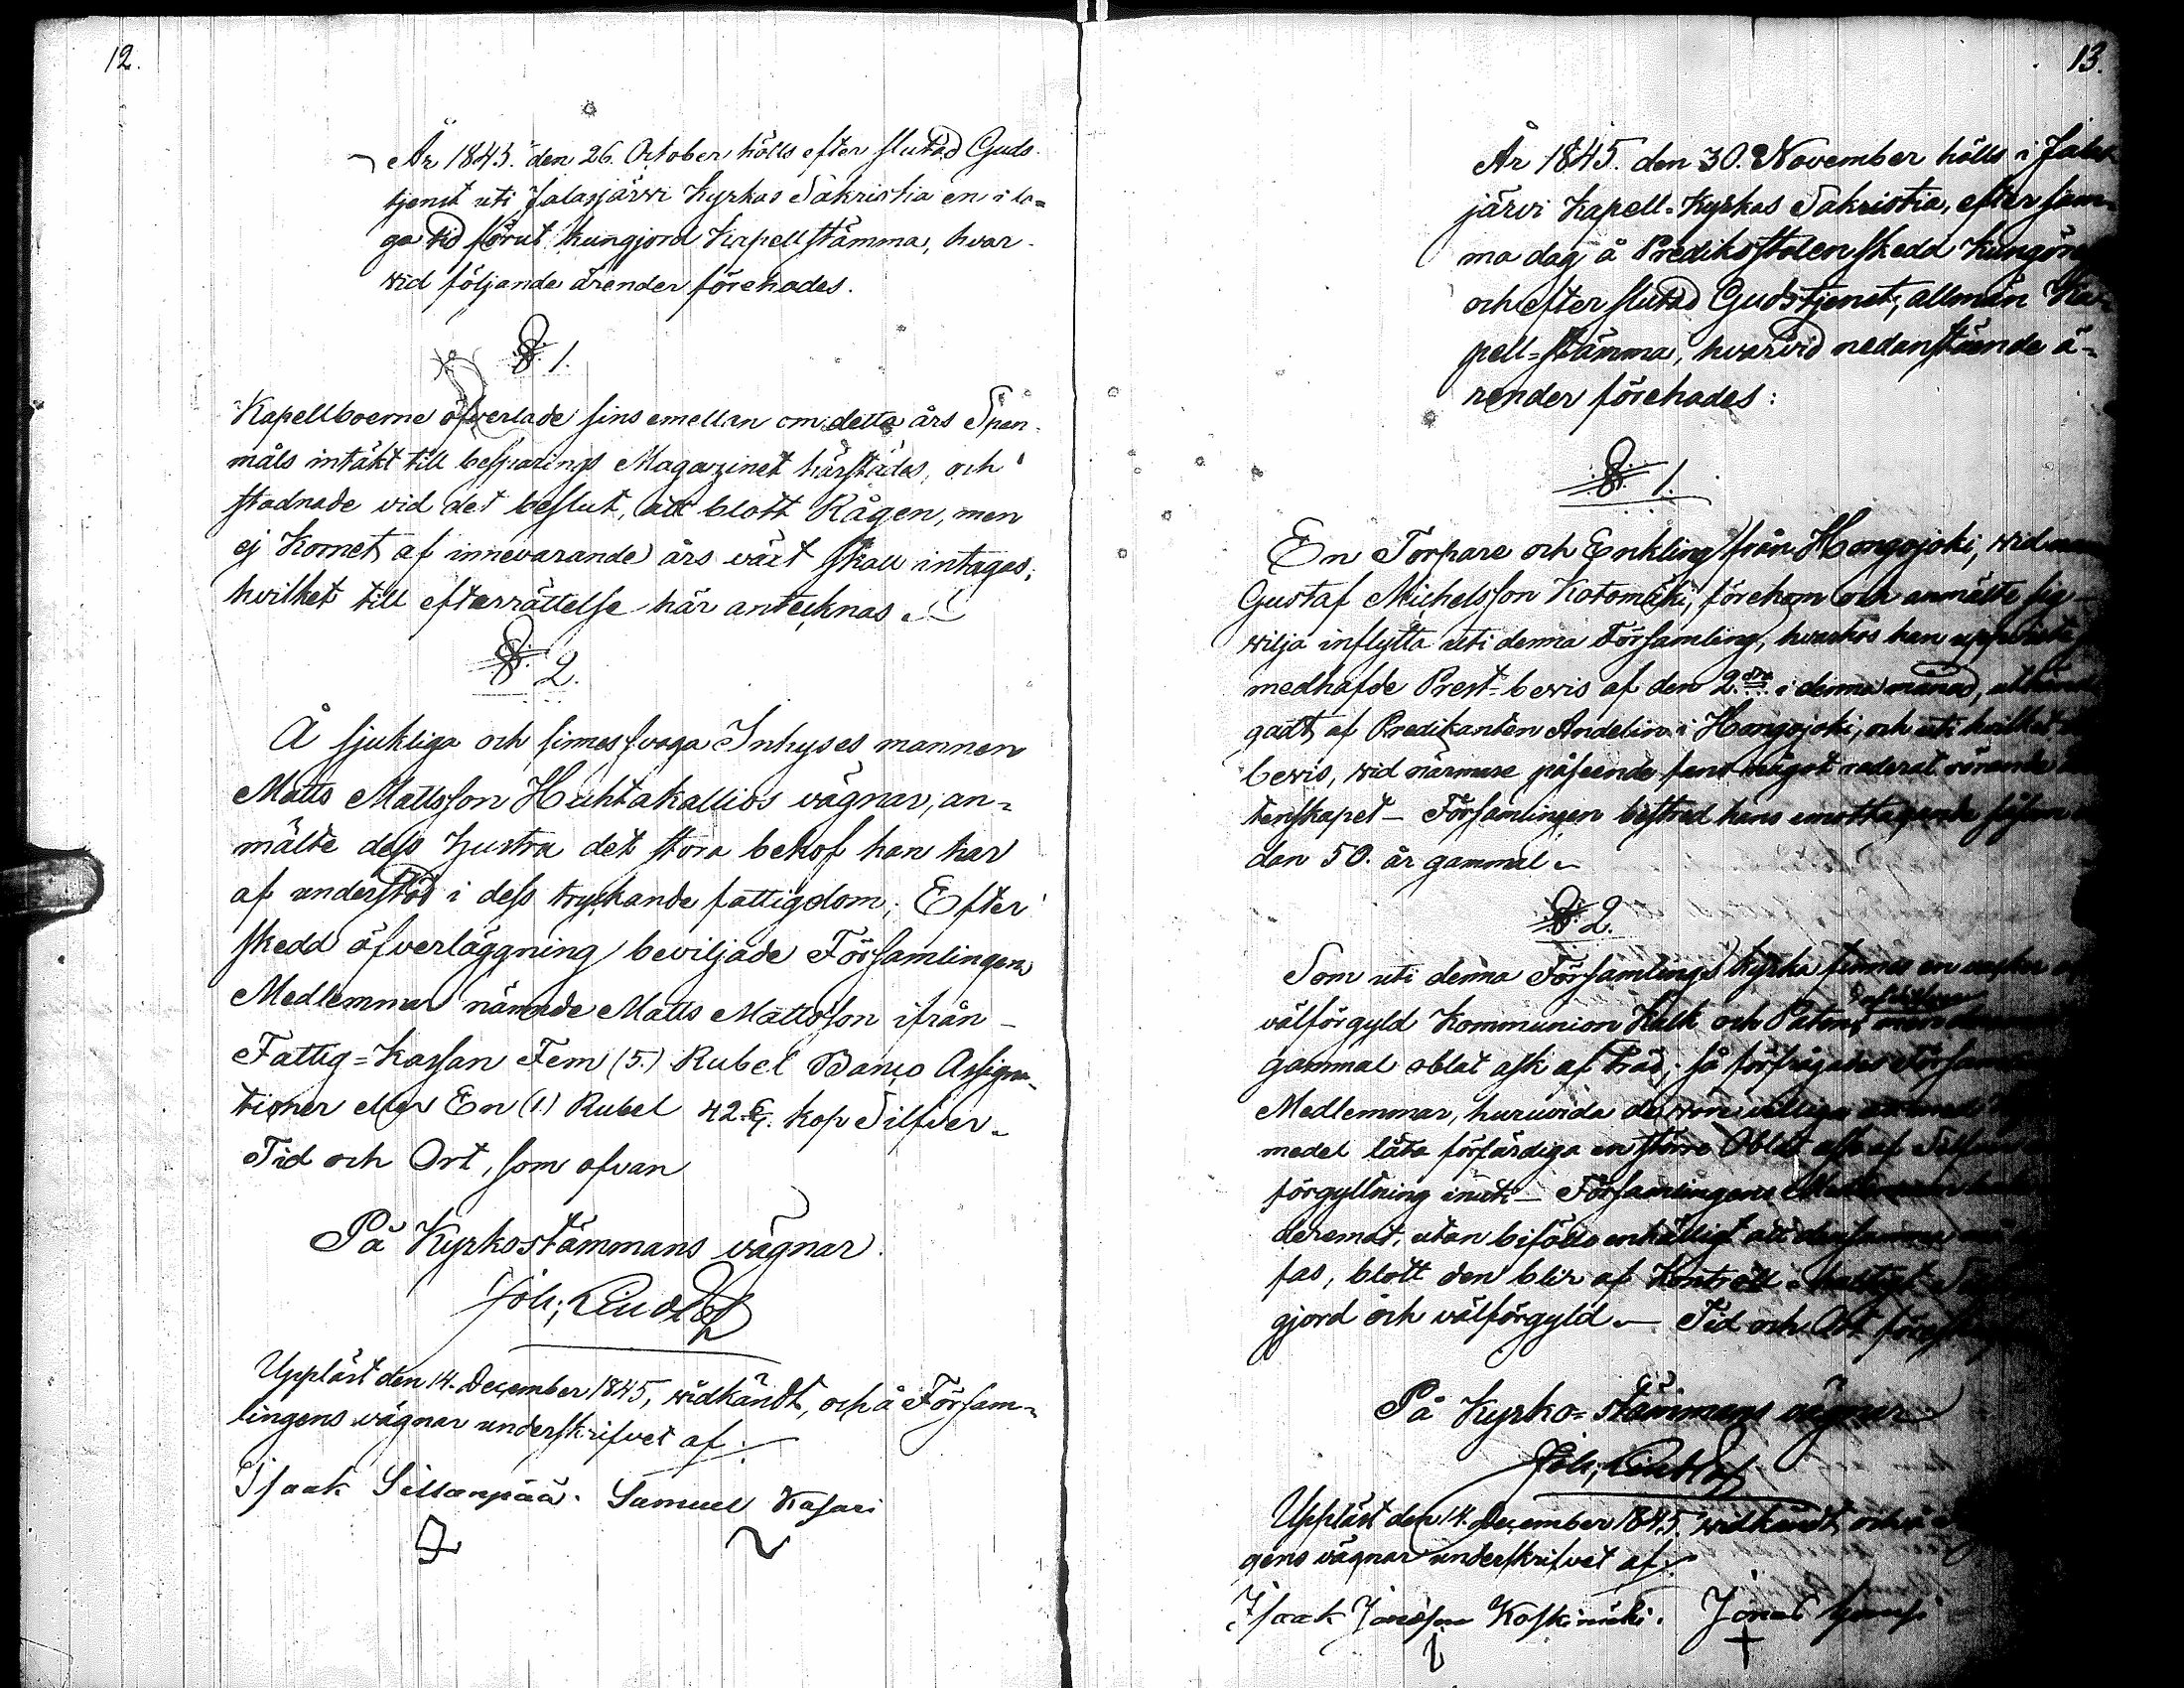 12.
År 1845. den 26. October hölls efter slutad Guds-
tjenst uti Jalasjärvi Kyrkas Sakristia en i la-
ga tid förut kungjord Kapellstämma, hvar-
wid följande ärender förehades.
§. 1.
Kapellboerne öfverlade sins emellan om detta års Span-
måls intäkt till besparings Magazinet härstädes, och
stadnade vid det beslut, att blott Rågen, men
ej Kornet af innevarande års växt skall intagas;
hvilket till efterrättelse här antecknas.
§. 2.
Å sjukliga och sinnessvaga Inhyses mannen
Matts Mattsson Huhtakallios vägnar, an-
mälte dess hustru det stora behof han har
af understöd i dess tryckande fattigdom; Efter
skedd öfverläggning beviljade Församlingens
Medlemmar nämnde Matts Mattsson ifrån
Fattig=Kassan Fem (5.) Rubel Banco Assigna-
tioner eller En (1.) Rubel 42 6/7. kop Silfver.
Tid och Ort, som ofvan
På Kyrkostämmans vägnar
Joh; Lindlöf
Uppläst den 14. December 1845, widkändt, och å Försam-
lingens vägnar underskrifvet af:
Isaak Sillanpää. Samuel Kasari
13.
År 1845. den 30. November hölls i Jalas-
järvi Kapell=Kyrkas Sakristia, efter sam-
ma dag å Predikostolen skedd Kungöre
och efter slutad Gudstjenst, allmän Ka-
pell=stämma, hvarvid nedanstående ä-
render förehades:
§. 1.
En Torpare och Enkling från Hongojoki, wid
Gustaf Michelsson Katomäki, förekom och anmälte sig
wilja inflytta uti denna Församling, hvarhos han uppviste
medhafde Prest=bevis af den 2dra i denna månad,
gadt af Predikanten Andelin i Hongojoki, och uti hvilket
bevis, wid närmare påseende fans något raderat rörande
tenskapet – Församlingen bestred hans emottagande såsom
dan 50. år gammal.
§. 2.
Som uti denna Församlings Kyrka finnes en vacker
välförgyld Kommunion Kalk och Paten,
gammal oblat ask af träd; så förfrågades Försam
Medlemmar, huruvida de woro villiga att med
medel låta förfärdiga en större Oblat ask af Silfver
förgyllning inuti – Församlingens Medlemmar
deremot, utan biföllo enhälligt att densamma
fas, blott den blir af Kontroll-haltigt
gjord och välförgyld. – Tid och Ort
På Kyrko=stämmans vägnar
Joh; Lindlöf
Uppläst den 14. December 1845. widkändt, och å
gens vägnar underskrifvet af:
Isaak Jonasson Koskimäki. Jonas